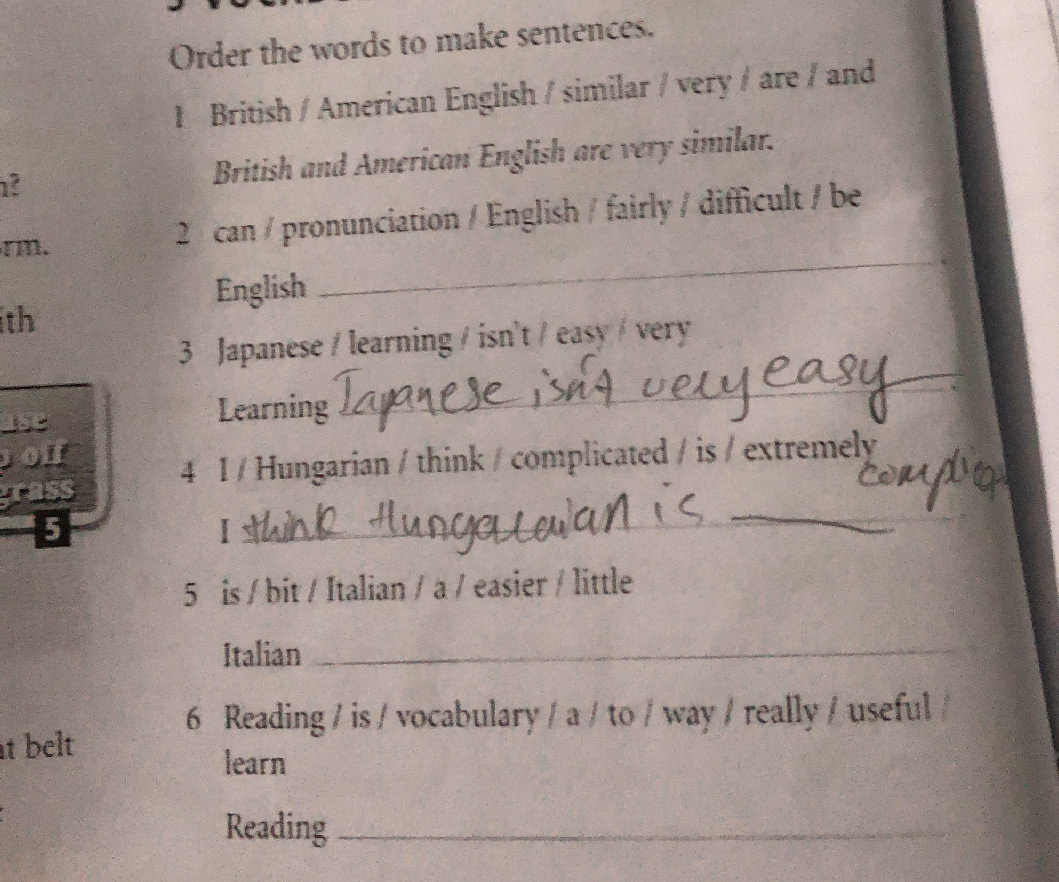 Order the words to make sentences.
1 British / American English / similar / very / are / and
British and American English are very similar.
2 can / pronunciation / English / fairly / difficult / be
English
3 Japanese / learning / isn't / easy / very
Learning Japanese isn't very easy.
4 I / Hungarian / think / complicated / is / extremely
I think Hungarian is
5 is / bit / Italian / a / easier / little
Italian
6 Reading / is / vocabulary / a / to / way / really / useful /
learn
Reading
?
rm.
ith
off
grass
5
t belt